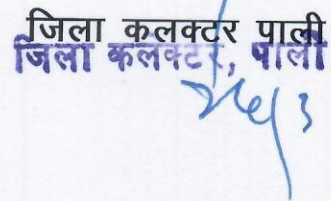 जिला कलक्टर पाली
जिला कलेक्टर, पाली